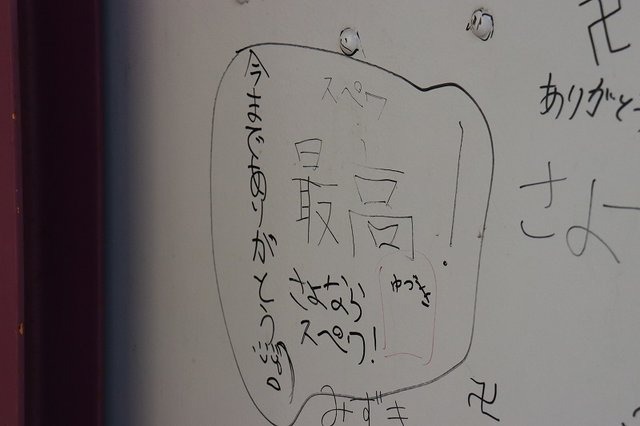 卍
ありがと
さよ
スペワ
最高!
今までありがとう
ゆづき
さよなら
スペワ!
みずき
卍